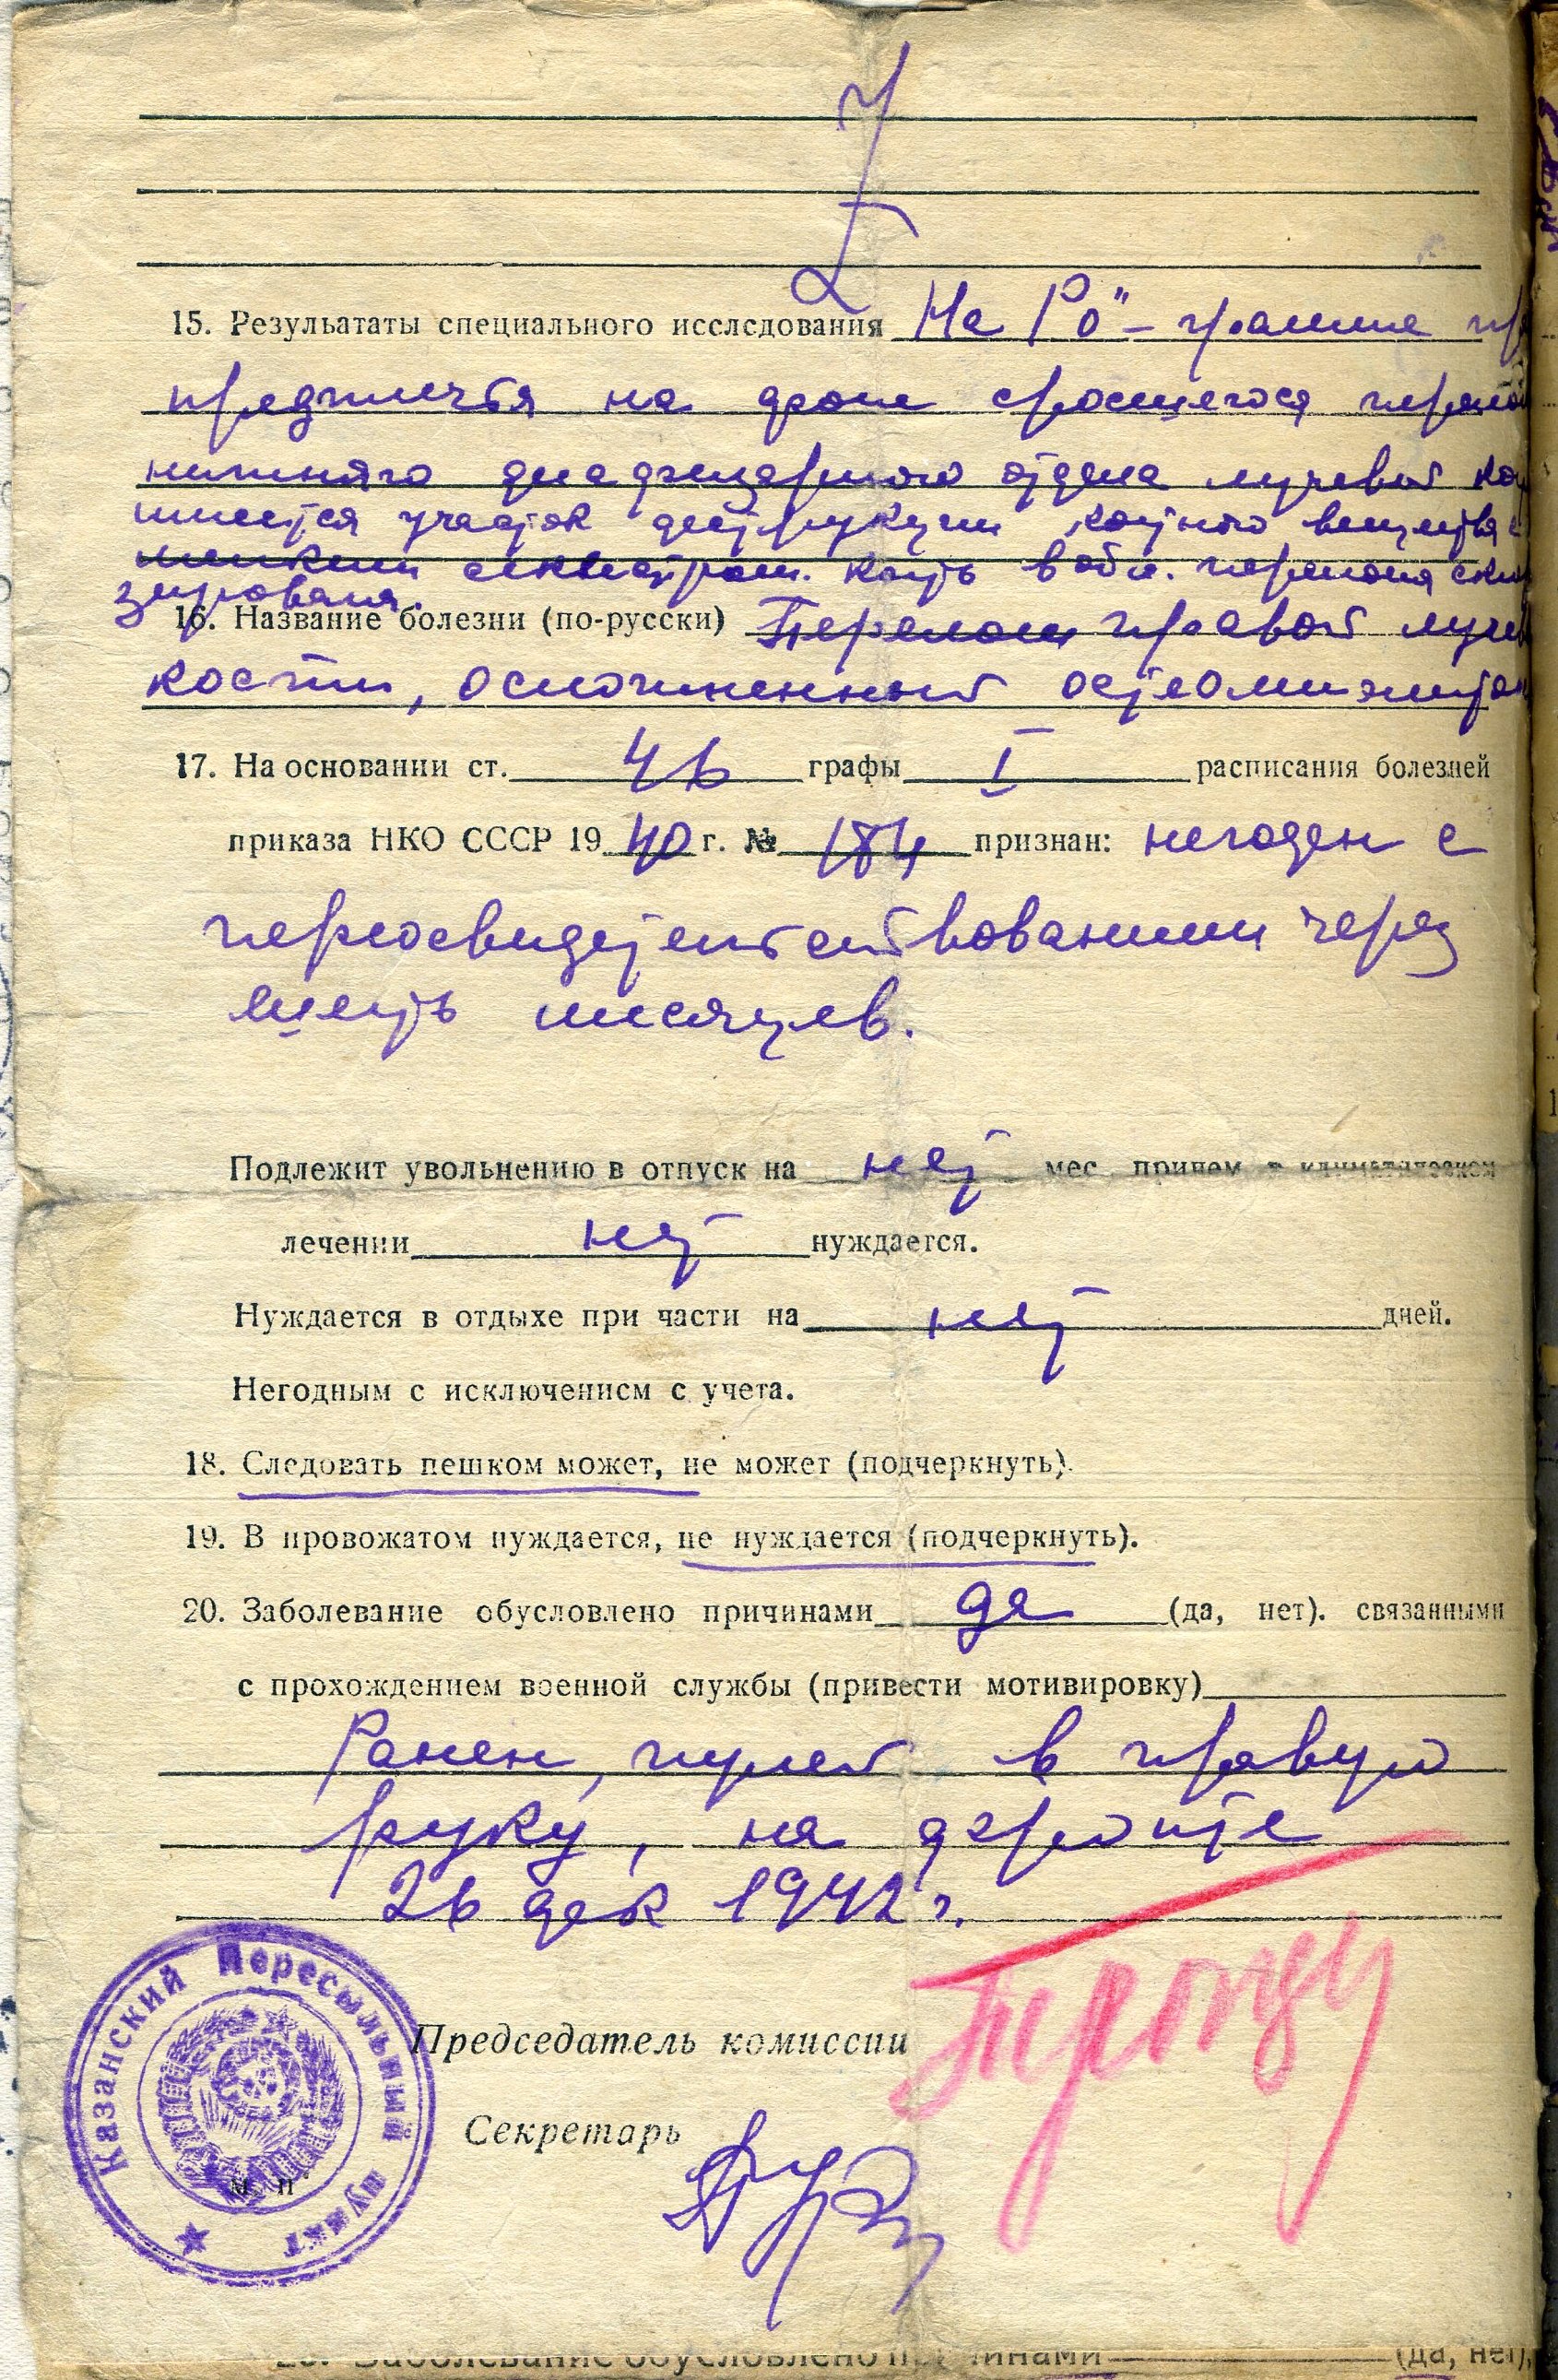 15. Резульататы специального исследования На Ро"-грамме пр
предплечья на фоне сросшегося перелом
нижняго диафизарного отдела лучевой ко
имеется участок деструкции костного вещества с
мелкими секвестрами. Кость в обл. перелома скле
зирована.
16. Название болезни (по-русски) Перелом правой луче
кости, осложненный остеомиэлитом
17. На основании ст. 4б графы I расписания болезней
приказа НКО СССР 1940 г. № 184 признан: негоден с
переосвидетельствованием через
шесть месяцев.
Подлежит увольнению в отпуск на нет мес причем в климатическом
лечении нет нуждается.
Нуждается в отдыхе при части на нет дней.
Негодным с исключением с учета.
18. Следовать пешком может, не может (подчеркнуть).
19. В провожатом нуждается, не нуждается (подчеркнуть).
20. Заболевание обусловлено причинами да (да, нет). связанными
с прохождением военной службы (привести мотивировку)
Ранен, пулей в правую
руку, на фронте
26 дек 1942 г.
Казанский Пересыльный пункт
Председатель комиссии
Секретарь
М. П
20. Заболевание обусловлено причинами (да, нет),